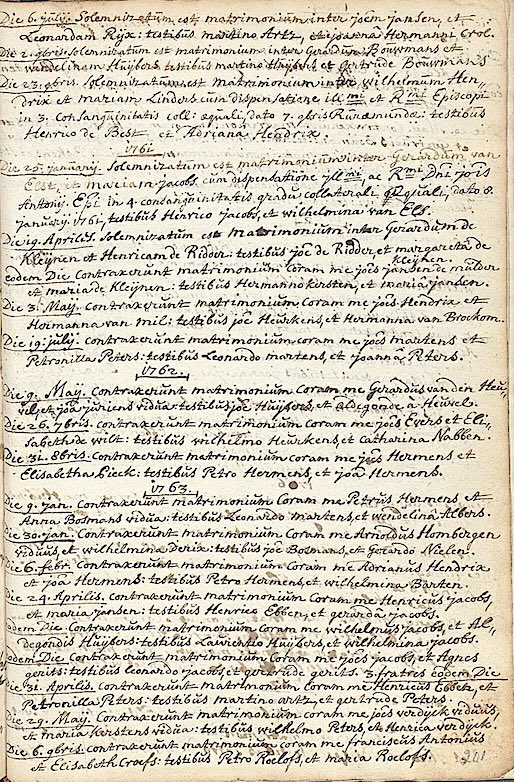 Die 6. julij. Solemnizatum est matrimonium inter joem jansen, et
Leonardam Rijx: testibus martino Artz, et joanna Hermanni Crol.
Die 2. 9bris. Solemnizatum est matrimonium inter Gerardum Bouwmans et
wendelinam Huijbers testibus martino Huijbers et Gertrude Bouwmans
Die 23. 9bris. Solemnizatum est matrimonium inter wilhelmum Hen,
drix et mariam Linders cum dispensatione ill:mi et R:mi Episcopi
in 3. Consanguinitatis coll: æquali, dato 7. 9bris Ruræmundæ: testibus
Henrico de Best et Adriana Hendrix.
1761.
Die 25. januarij. Solemnizatum est matrimonium inter Gerardum van
Elst, et mariam jacobs, cum dispensatione jll:mi ac R:mi Dni jois
Antonij Epi in 4 consanguinitatis gradu collaterali æquali, dato 8.
januarij 1761, testibus Henrico jacobs, et wilhelmina van Els.
Die 19. Aprilis. Solemnizatum est matrimonium inter Gerardum de
Kleijnen et Henricam de Ridder: testibus joe de Ridder, et margareta de
Kleijnen.
eodem Die Contraxerunt matrimonium Coram me joes jansen de mulder
et maria de Kleijnen: testibus Hermanno Kersten, et maria jansen.
Die 3. Maij. Contraxerunt matrimonium Coram me joes Hendrix et
Hermanna van mil: testibus joe Heurkens, et Hermanna van Brockom.
Die 19. julij. contraxerunt matrimonium coram me joes martens et
Petronilla Peters: testibus Leonardo martens, et joanna Peters.
1762.
Die 9. Maij. Contraxerunt matrimonium Coram me Gerardus van den Heu,
vel, et joa juriens vidua: testibus joe Huijbers, et aldegonde à Heuvel.
Die 26. 7bris. contraxerunt matrimonium coram me joes Evers et Eli,
sabeth de wilt: testibus wilhelmo Heurkens, et Catharina Nabben.
Die 31. 8bris. Contraxerunt matrimonium coram me joes Hermens et
Elisabetha Gieck: testibus Petro Hermens, et joa Hermens.
1763.
Die 9. jan. Contraxerunt matrimonium Coram me Petrus Hermens et
Anna Bosmans vidua: testibus Leonardo martens, et wendelina Albers.
Die 30. jan. Contraxerunt matrimonium Coram me Arnoldus Hombergen
viduus, et wilhelmina Derix: testibus joe Bosmans, et Gerardo Nielen.
Die 6. febr. Contraxerunt matrimonium Coram me Adrianus Hendrix
et joa Hermens: testibus Petro Hermens, et wilhelmina Barten.
Die 24. Aprilis. Contraxerunt matrimonium coram me Henricus jacobs,
et maria jansen: testibus Henrico Ebben, et gerarda jacobs.
eodem Die. Contraxerunt matrimonium Coram me wilhelmus jacobs, et Al,
degondis Huijbers: testibus Laurentio Huijbers, et wilhelmina jacobs.
eodem Die Contraxerunt matrimonium Coram me joes jacobs, et Agnes
gerits: testibus Leonardo jacobs, et gertrude gerits. 3. fratres eodem Die
Die 31. Aprilis. Contraxerunt matrimonium Coram me Henricus Ebben, et
Petronilla Peters: testibus martino artz, et gertrude Peters.
Die 29. Maij. Contraxerunt matrimonium coram me joes verdijck viduus,
et maria Kerstens vidua: testibus wilhelmo Peters, et Henrica verdijck.
Die 6. 9bris contraxerunt matrimonium coram me franciscus Antonius
et Elisabeth Croefs: testibus Petro Roelofs, et maria Roelofs.